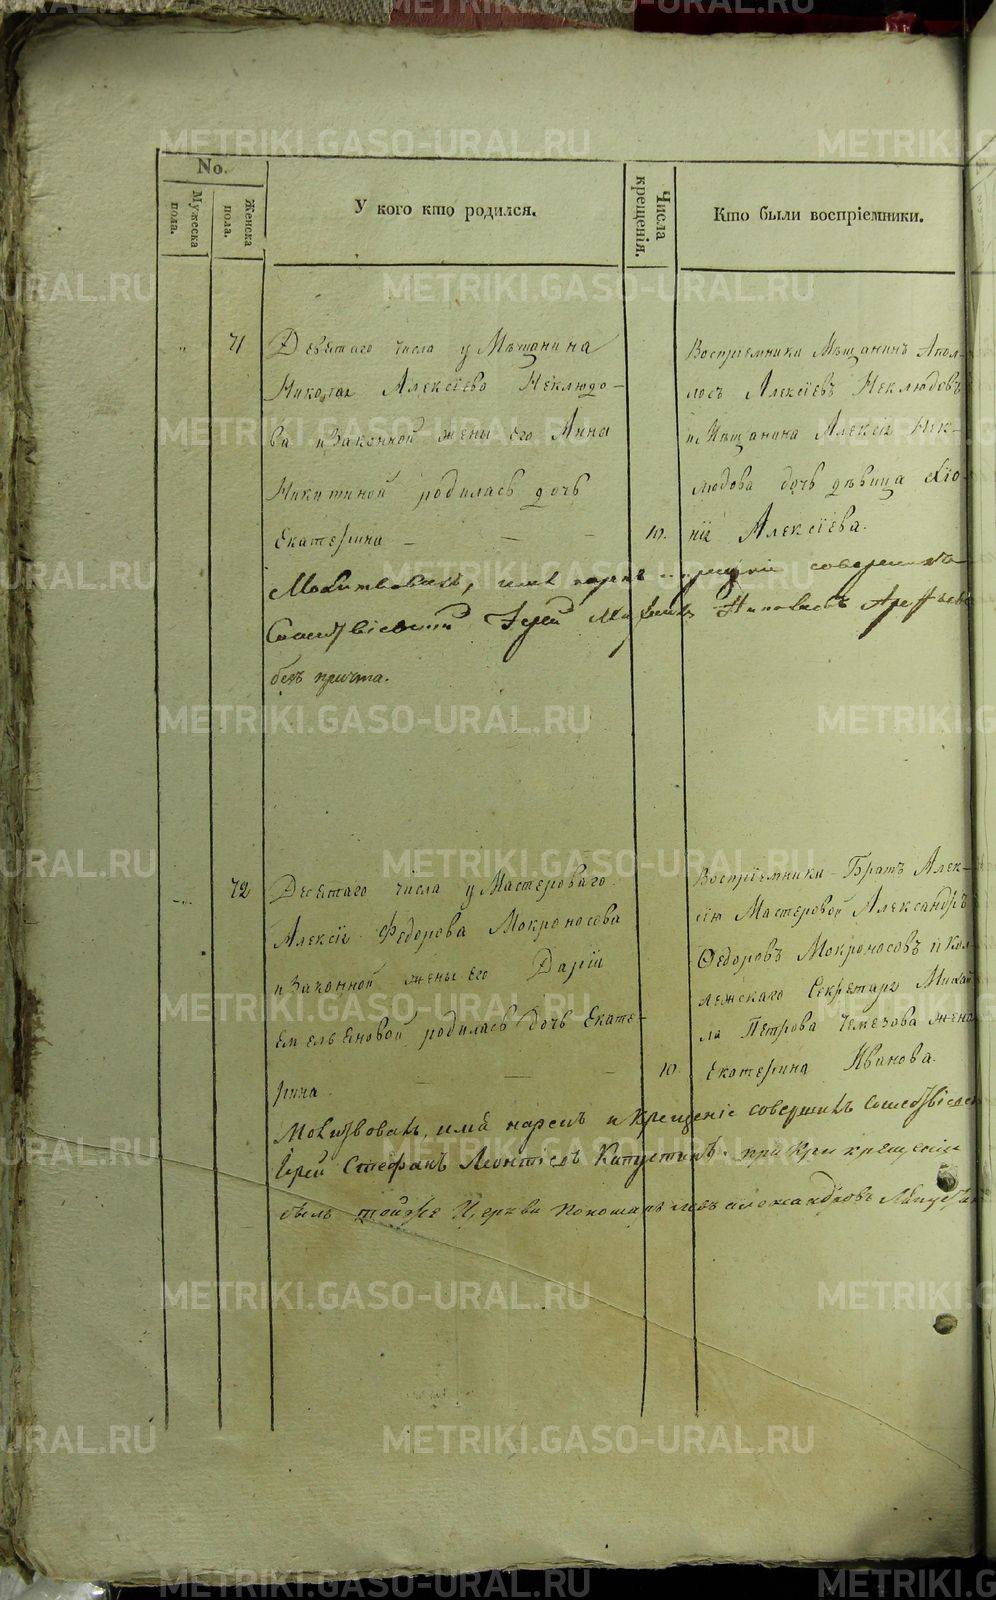 No.
Мужеска пола.
Женска пола.
У кого кто родился.
Числа крещенія.
Кто были воспріемники.
71
Девятаго числа у Мѣщанина
Николая Алексіева Неклюдо-
ва и Законной жены его Анны
Никитиной родилась дочь
Екатерина
10.
Воспріемники Мѣщанинъ Апол-
лосъ Алексіевъ Неклюдовъ
и Мѣщанина Алексія Нек-
людова дочь дѣвица Хіо-
нія Алексіева.
Молитвовалъ, имя нарекъ и крещеніе совершилъ
Іерей Николаевъ Арефьевъ
безъ причта.
72
Десятаго числа у Мастероваго
Алексія Федорова Мокроносова
и Законной жены его Даріи
Емельяновой родилась дочь Екате-
рина
10.
Воспріемники Братъ Алек-
сію Мастеровой Александръ
Федоровъ Мокроносовъ и Кол-
лежскаго Секретаря Михай-
ла Петрова Чемезова жена
Екатерина Иванова.
Молитвовалъ, имя нарекъ и крещеніе совершилъ
Іерей Стефанъ Леонтіевъ Капустинъ. при крещеніи
былъ тойже Церкви Пономарь Левъ Александровъ
METRIKI.GASO-URAL.RU